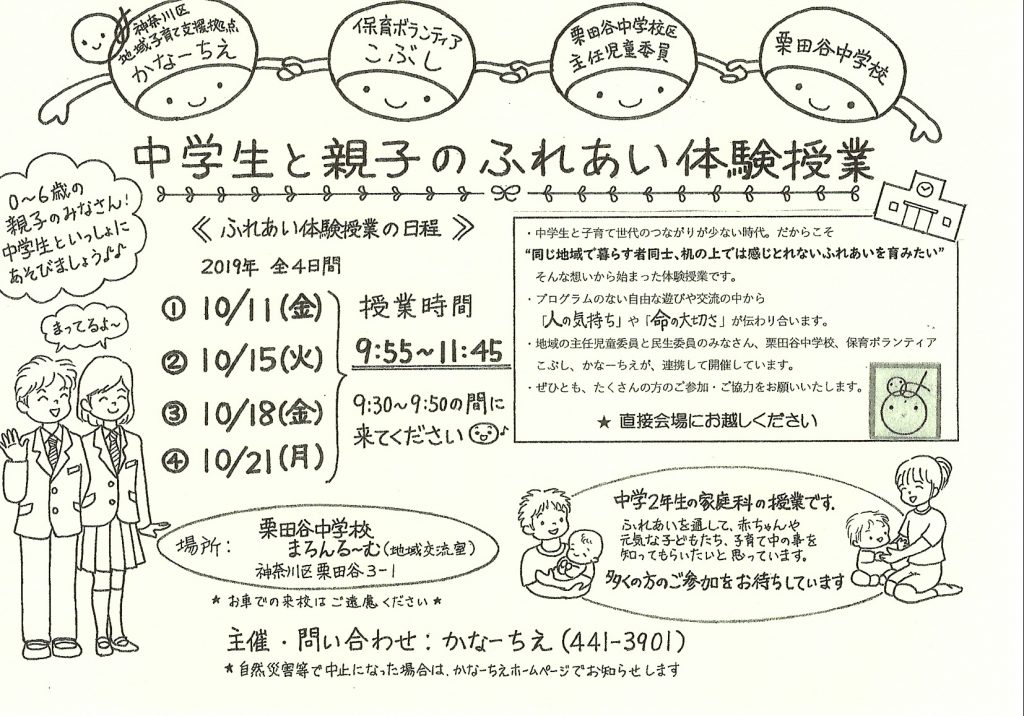 神奈川区
地域子育て支援拠点
かなーちえ
保育ボランティア
こぶし
栗田谷中学校区
主任児童委員
栗田谷中学校
中学生と親子のふれあい体験授業
0～6歳の
親子のみなさん!
中学生といっしょに
あそびましょう♪♪
まってるよ～
≪ ふれあい体験授業の日程 ≫
2019年 全4日間
① 10/11(金)
② 10/15(火)
③ 10/18(金)
④ 10/21(月)
授業時間
9:55～11:45
9:30～9:50の間に
来てください♪
・中学生と子育て世代のつながりが少ない時代。だからこそ
“同じ地域で暮らす者同士、机の上では感じとれないふれあいを育みたい”
そんな想いから始まった体験授業です。
・プログラムのない自由な遊びや交流の中から
「人の気持ち」や「命の大切さ」が伝わり合います。
・地域の主任児童委員と民生委員のみなさん、栗田谷中学校、保育ボランティア
こぶし、かなーちえが、連携して開催しています。
・ぜひとも、たくさんの方のご参加・ご協力をお願いいたします。
★ 直接会場にお越しください
場所：
栗田谷中学校
まろんるーむ(地域交流室)
神奈川区栗田谷3-1
＊お車での来校はご遠慮ください＊
中学2年生の家庭科の授業です.
ふれあいを通して、赤ちゃんや
元気な子どもたち、子育て中の事を
知ってもらいたいと思っています。
多くの方のご参加をお待ちしています
主催・問い合わせ：かなーちえ(441-3901)
＊自然災害等で中止になった場合は、かなーちえホームページでお知らせします